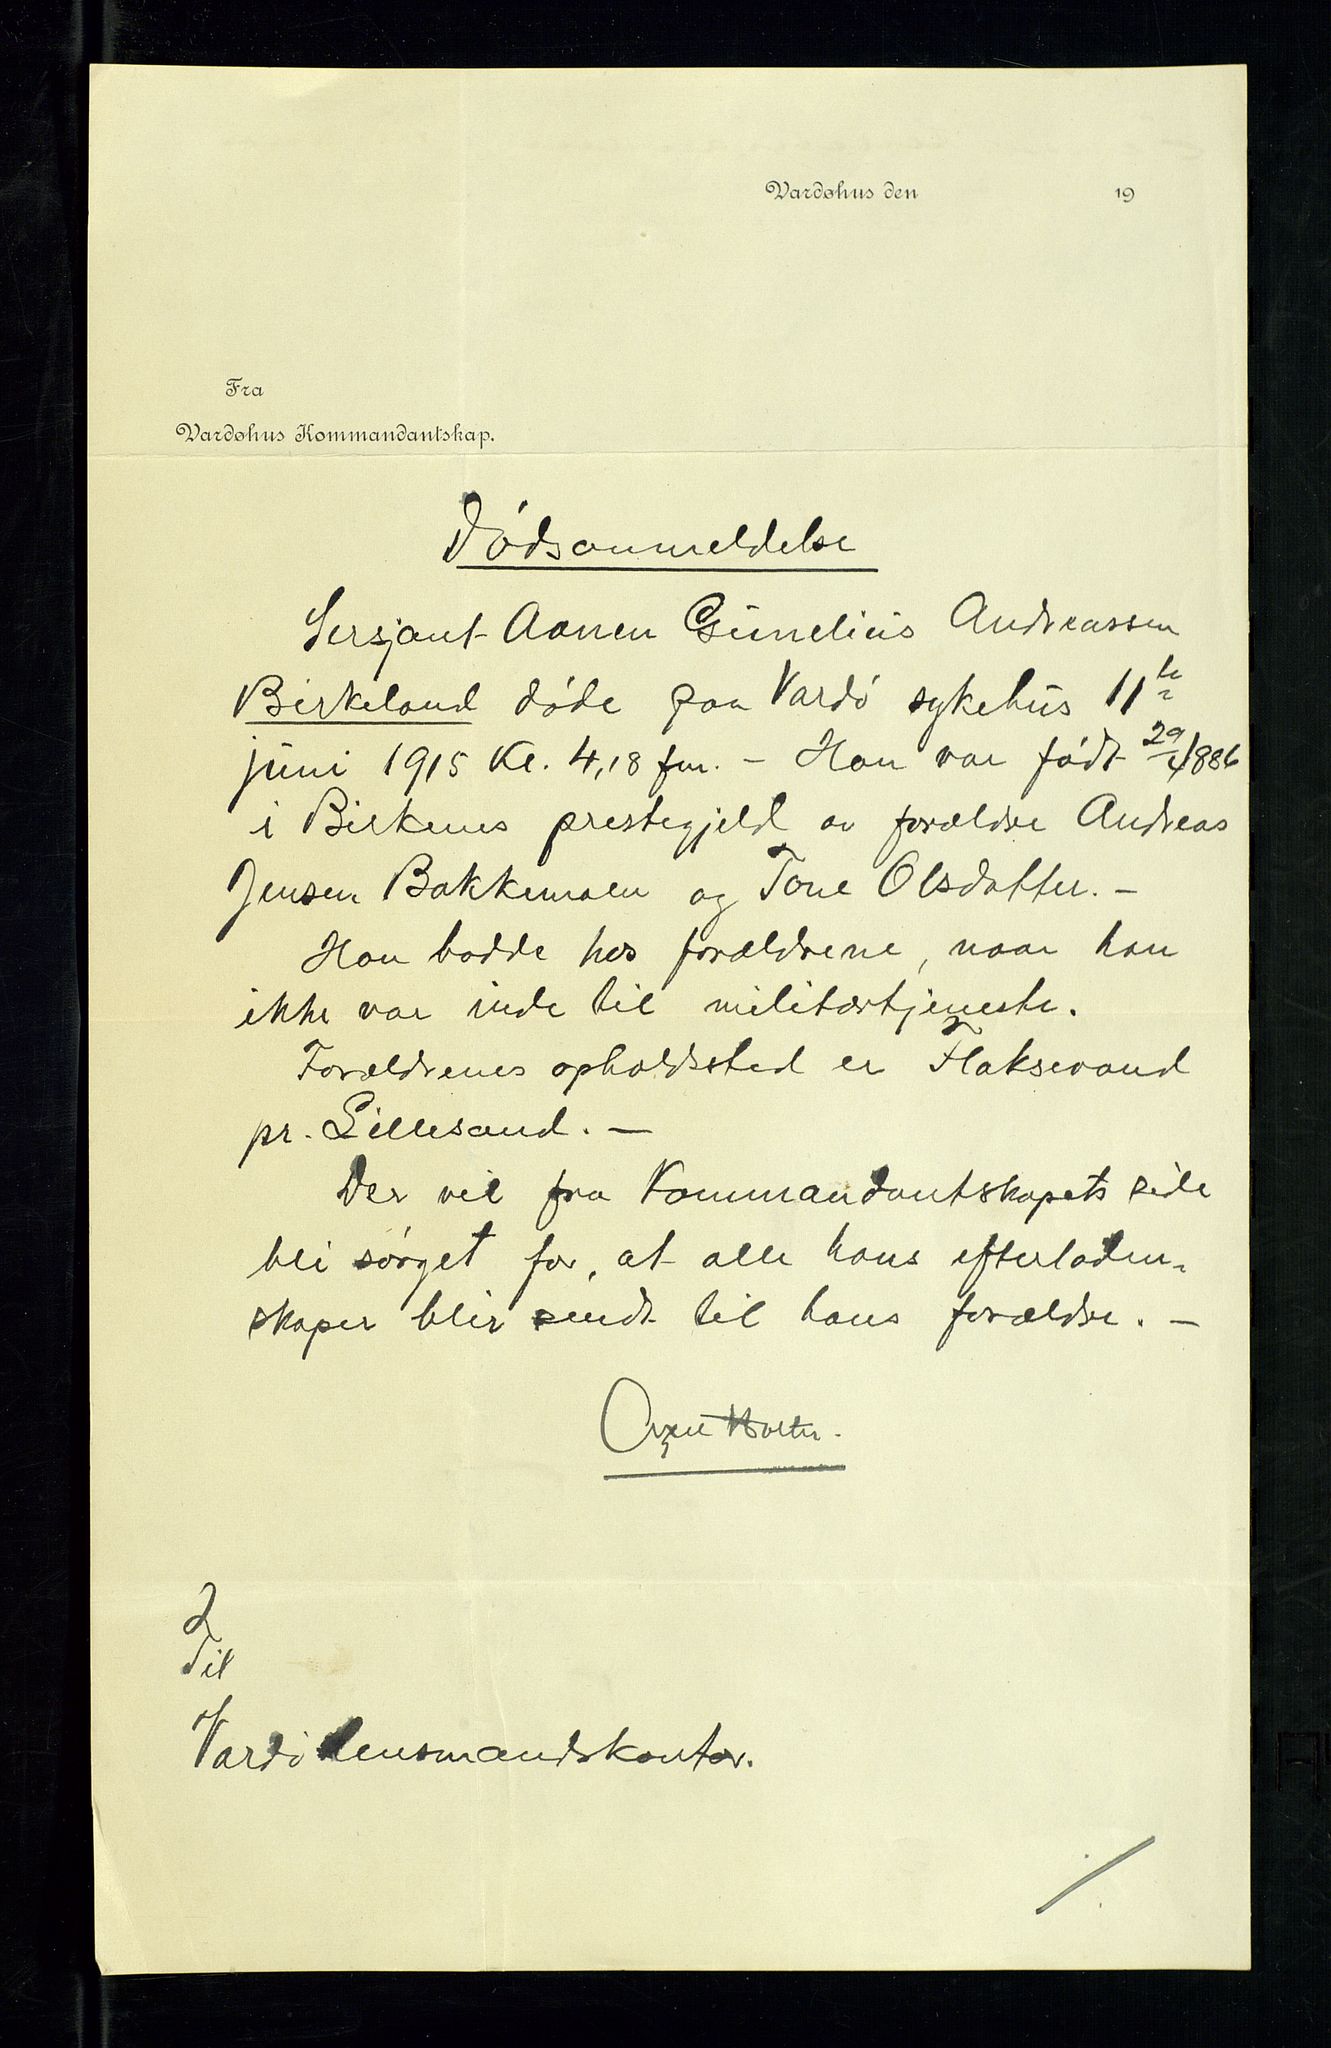 Vardøhus den 19
Fra
Vardøhus Kommandantskap.
Dødsanmeldelse
Sersjant Aanen Gunelius Andreassen
Birkeland døde paa Vardö sykehus 11te
juni 1915 Kl. 4,18 fm. – Han var født 29/4 1886
i Birkenes prestegjeld av forældre Andreas
Jensen Bakkemoen og Tone Olsdatter. –
Han bodde hos forældrene, naar han
ikke var inde til militærtjeneste.
Forældrenes opholdssted er Flaksvand
pr. Lillesand. –
Der vil fra Kommandantskapets side
bli sørget for, at alle hans efterladen-
skaper blir sendt til hans forældre. –
Holter.
Til
Vardö lensmandskontor.